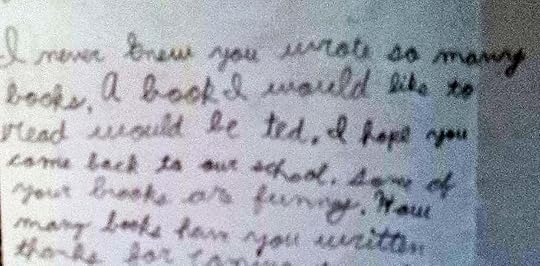 I never knew you wrote so many
books. A book I would like to
read would be ted. I hope you
come back to our school. Some of
your books are funny. How
many books have you written
thanks for coming